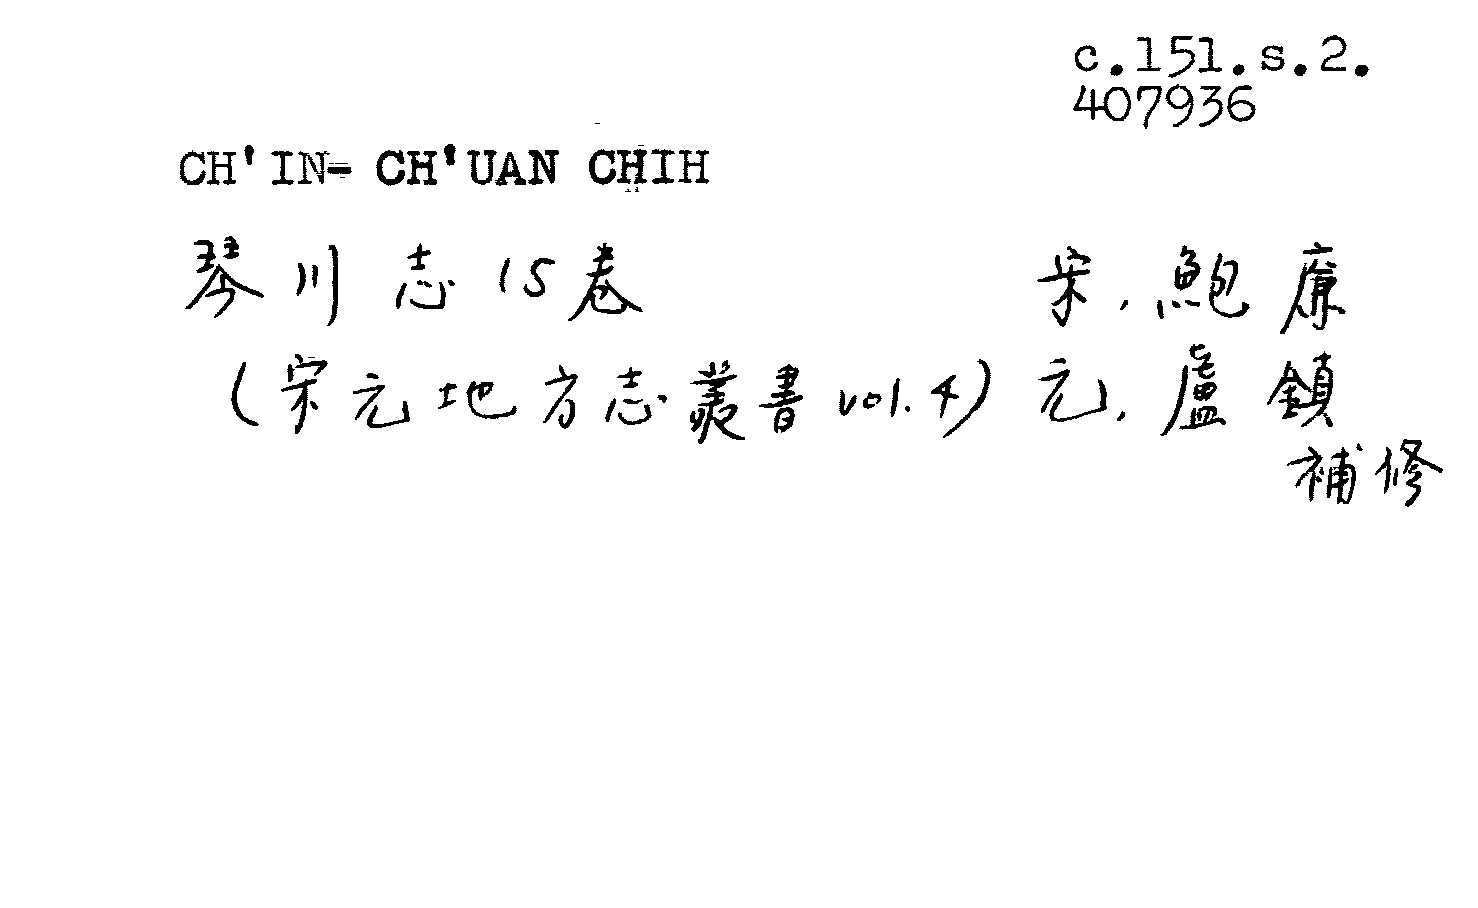 c.151.s.2.
407936
CH'IN- CH'UAN CHIH
琴川志 15卷 宋.鮑廉
(宋元地方志叢書 vol.4) 元.盧鎮
補修